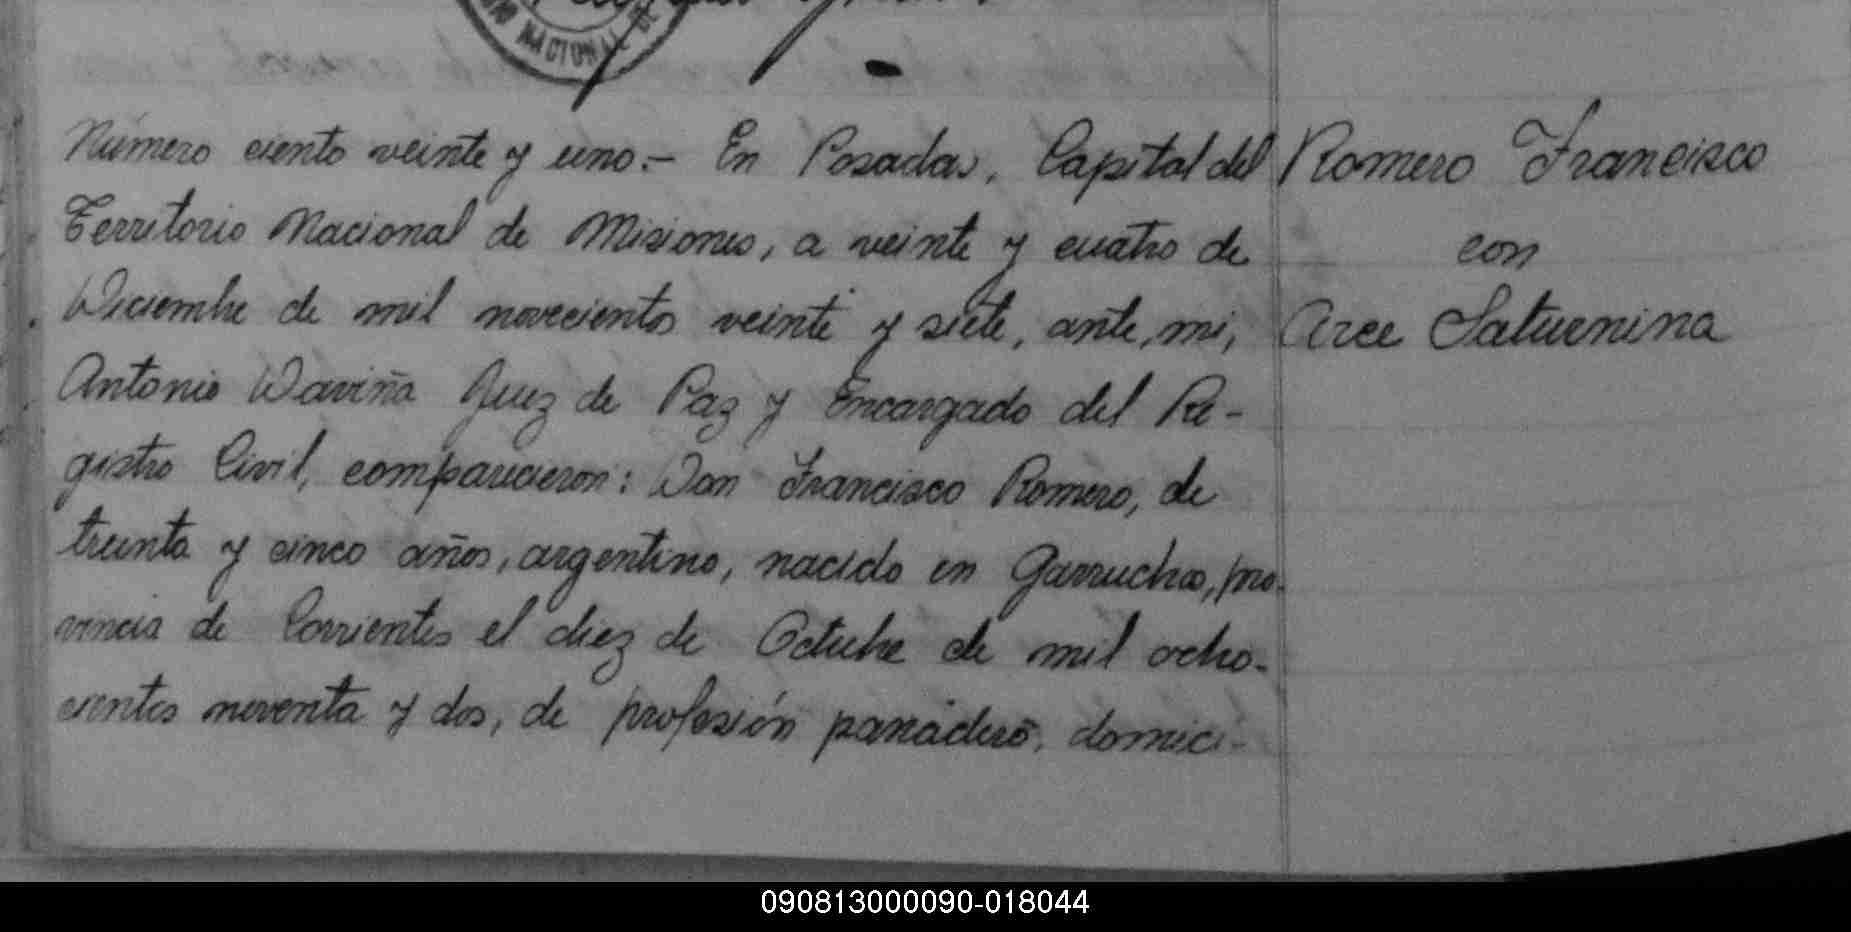 NACIONAL DE
Número ciento veinte y uno.- En Posadas, Capital del
Territorio Nacional de Misiones, a veinte y cuatro de
Diciembre de mil novecientos veinte y siete, ante, mi,
Antonio Daviña Juez de Paz y Encargado del Re-
gistro Civil, comparecieron: Don Francisco Romero, de
treinta y cinco años, argentino, nacido en Garruchos, pro-
vincia de Corrientes el diez de Octubre de mil ocho-
cientos noventa y dos, de profesión panadero, domici-
Romero Francisco
con
Arce Saturnina
090813000090-018044